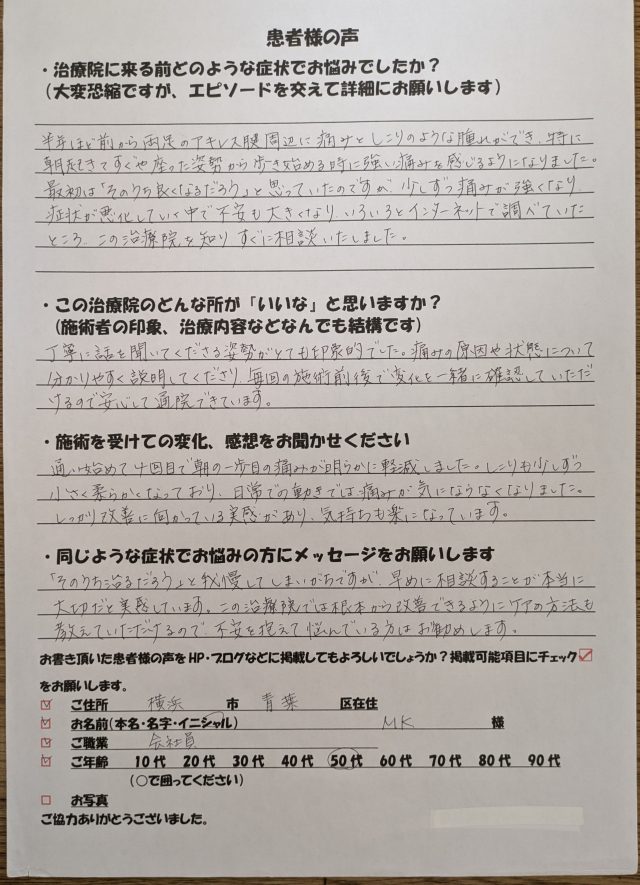 患者様の声
・治療院に来る前どのような症状でお悩みでしたか？
（大変恐縮ですが、エピソードを交えて詳細にお願いします）
半年ほど前から両足のアキレス腱周辺に痛みとしこりのような腫れができ、特に
朝起きてすぐや座った姿勢から歩き始める時に強い痛みを感じるようになりました。
最初は「そのうち良くなるだろう」と思っていたのですが、少しずつ痛みが強くなり、
症状が悪化していく中で不安も大きくなり、いろいろとインターネットで調べていた
ところ、この治療院を知りすぐに相談いたしました。
・この治療院のどんな所が「いいな」と思いますか？
（施術者の印象、治療内容などなんでも結構です）
丁寧に話を聞いてくださる姿勢がとても印象的でした。痛みの原因や状態について
分かりやすく説明してくださり、毎回の施術前後で変化を一緒に確認していただ
けるので安心して通院できています。
・施術を受けての変化、感想をお聞かせください
通い始めて4回目で朝の一歩目の痛みが明らかに軽減しました。しこりも少しずつ
小さく柔らかくなっており、日常での動きでは痛みが気にならなくなりました。
しっかり改善に向かっている実感があり、気持ちも楽になっています。
・同じような症状でお悩みの方にメッセージをお願いします
「そのうち治るだろう」と我慢してしまいがちですが、早めに相談することが本当に
大切だと実感しています。この治療院では根本から改善できるようにケアの方法も
教えていただけるので、不安を抱えて悩んでいる方はお勧めします。
お書き頂いた患者様の声をHP・ブログなどに掲載してもよろしいでしょうか？掲載可能項目にチェック☑
をお願いします。
☑ ご住所 横浜 市 青葉 区在住
☑ お名前(本名・名字・イニシャル) MK 様
☑ ご職業 会社員
☑ ご年齢 10代 20代 30代 40代 50代 60代 70代 80代 90代
（○で囲ってください）
□ お写真
ご協力ありがとうございました。